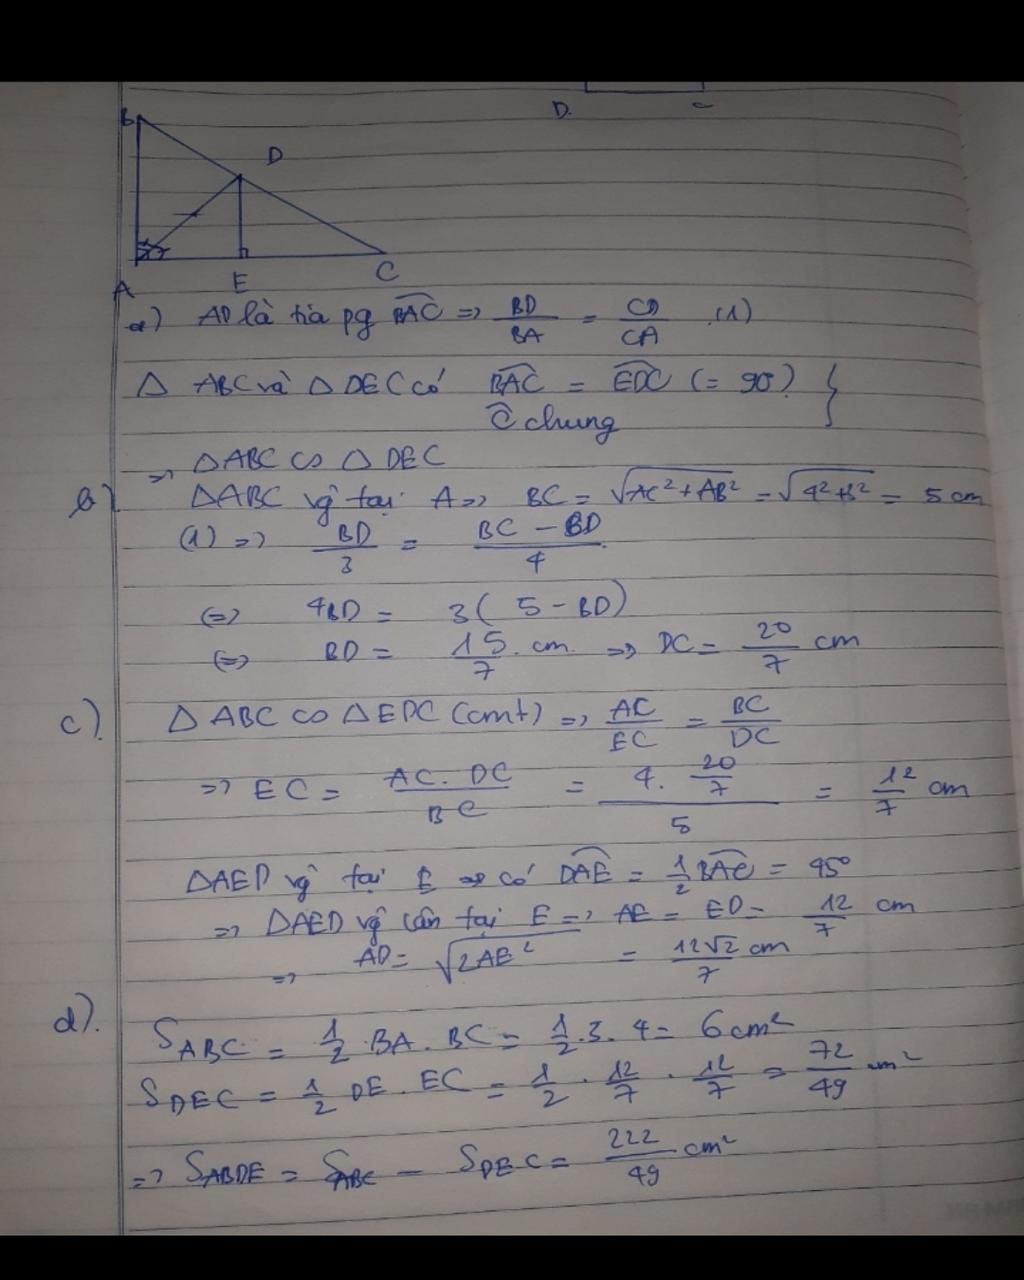 D. C
B
D
A E C
a) AD là tia pg BAC => BD/BA = CD/CA (1)
Δ ABC và Δ DEC có BAC = EDC (= 90°) }
C chung
=> ΔABC ∽ Δ DEC
b) ΔABC vg tại A => BC = √AC²+AB² = √4²+3² = 5 cm
(1) => BD/3 = BC - BD/4
(=) 4BD = 3( 5 - BD)
(=) BD = 15/7 . cm => DC = 20/7 cm
c). Δ ABC ∽ Δ EDC (cmt) => AC/EC = BC/DC
=> EC = AC. DC/BC = 4. 20/7/5 = 12/7 cm
ΔAED vg tại E => có DAE = 1/2 BAC = 45°
=> ΔAED vg cân tại E => AE = ED = 12/7 cm
=> AD = √2AE² = 12√2/7 cm
d). SABC = 1/2 . BA . BC = 1/2 . 3. 4 = 6 cm²
SDEC = 1/2 DE . EC = 1/2 . 12/7 . 12/7 = 72/49 cm²
=> SABDE = SABC - SDEC = 222/49 cm²